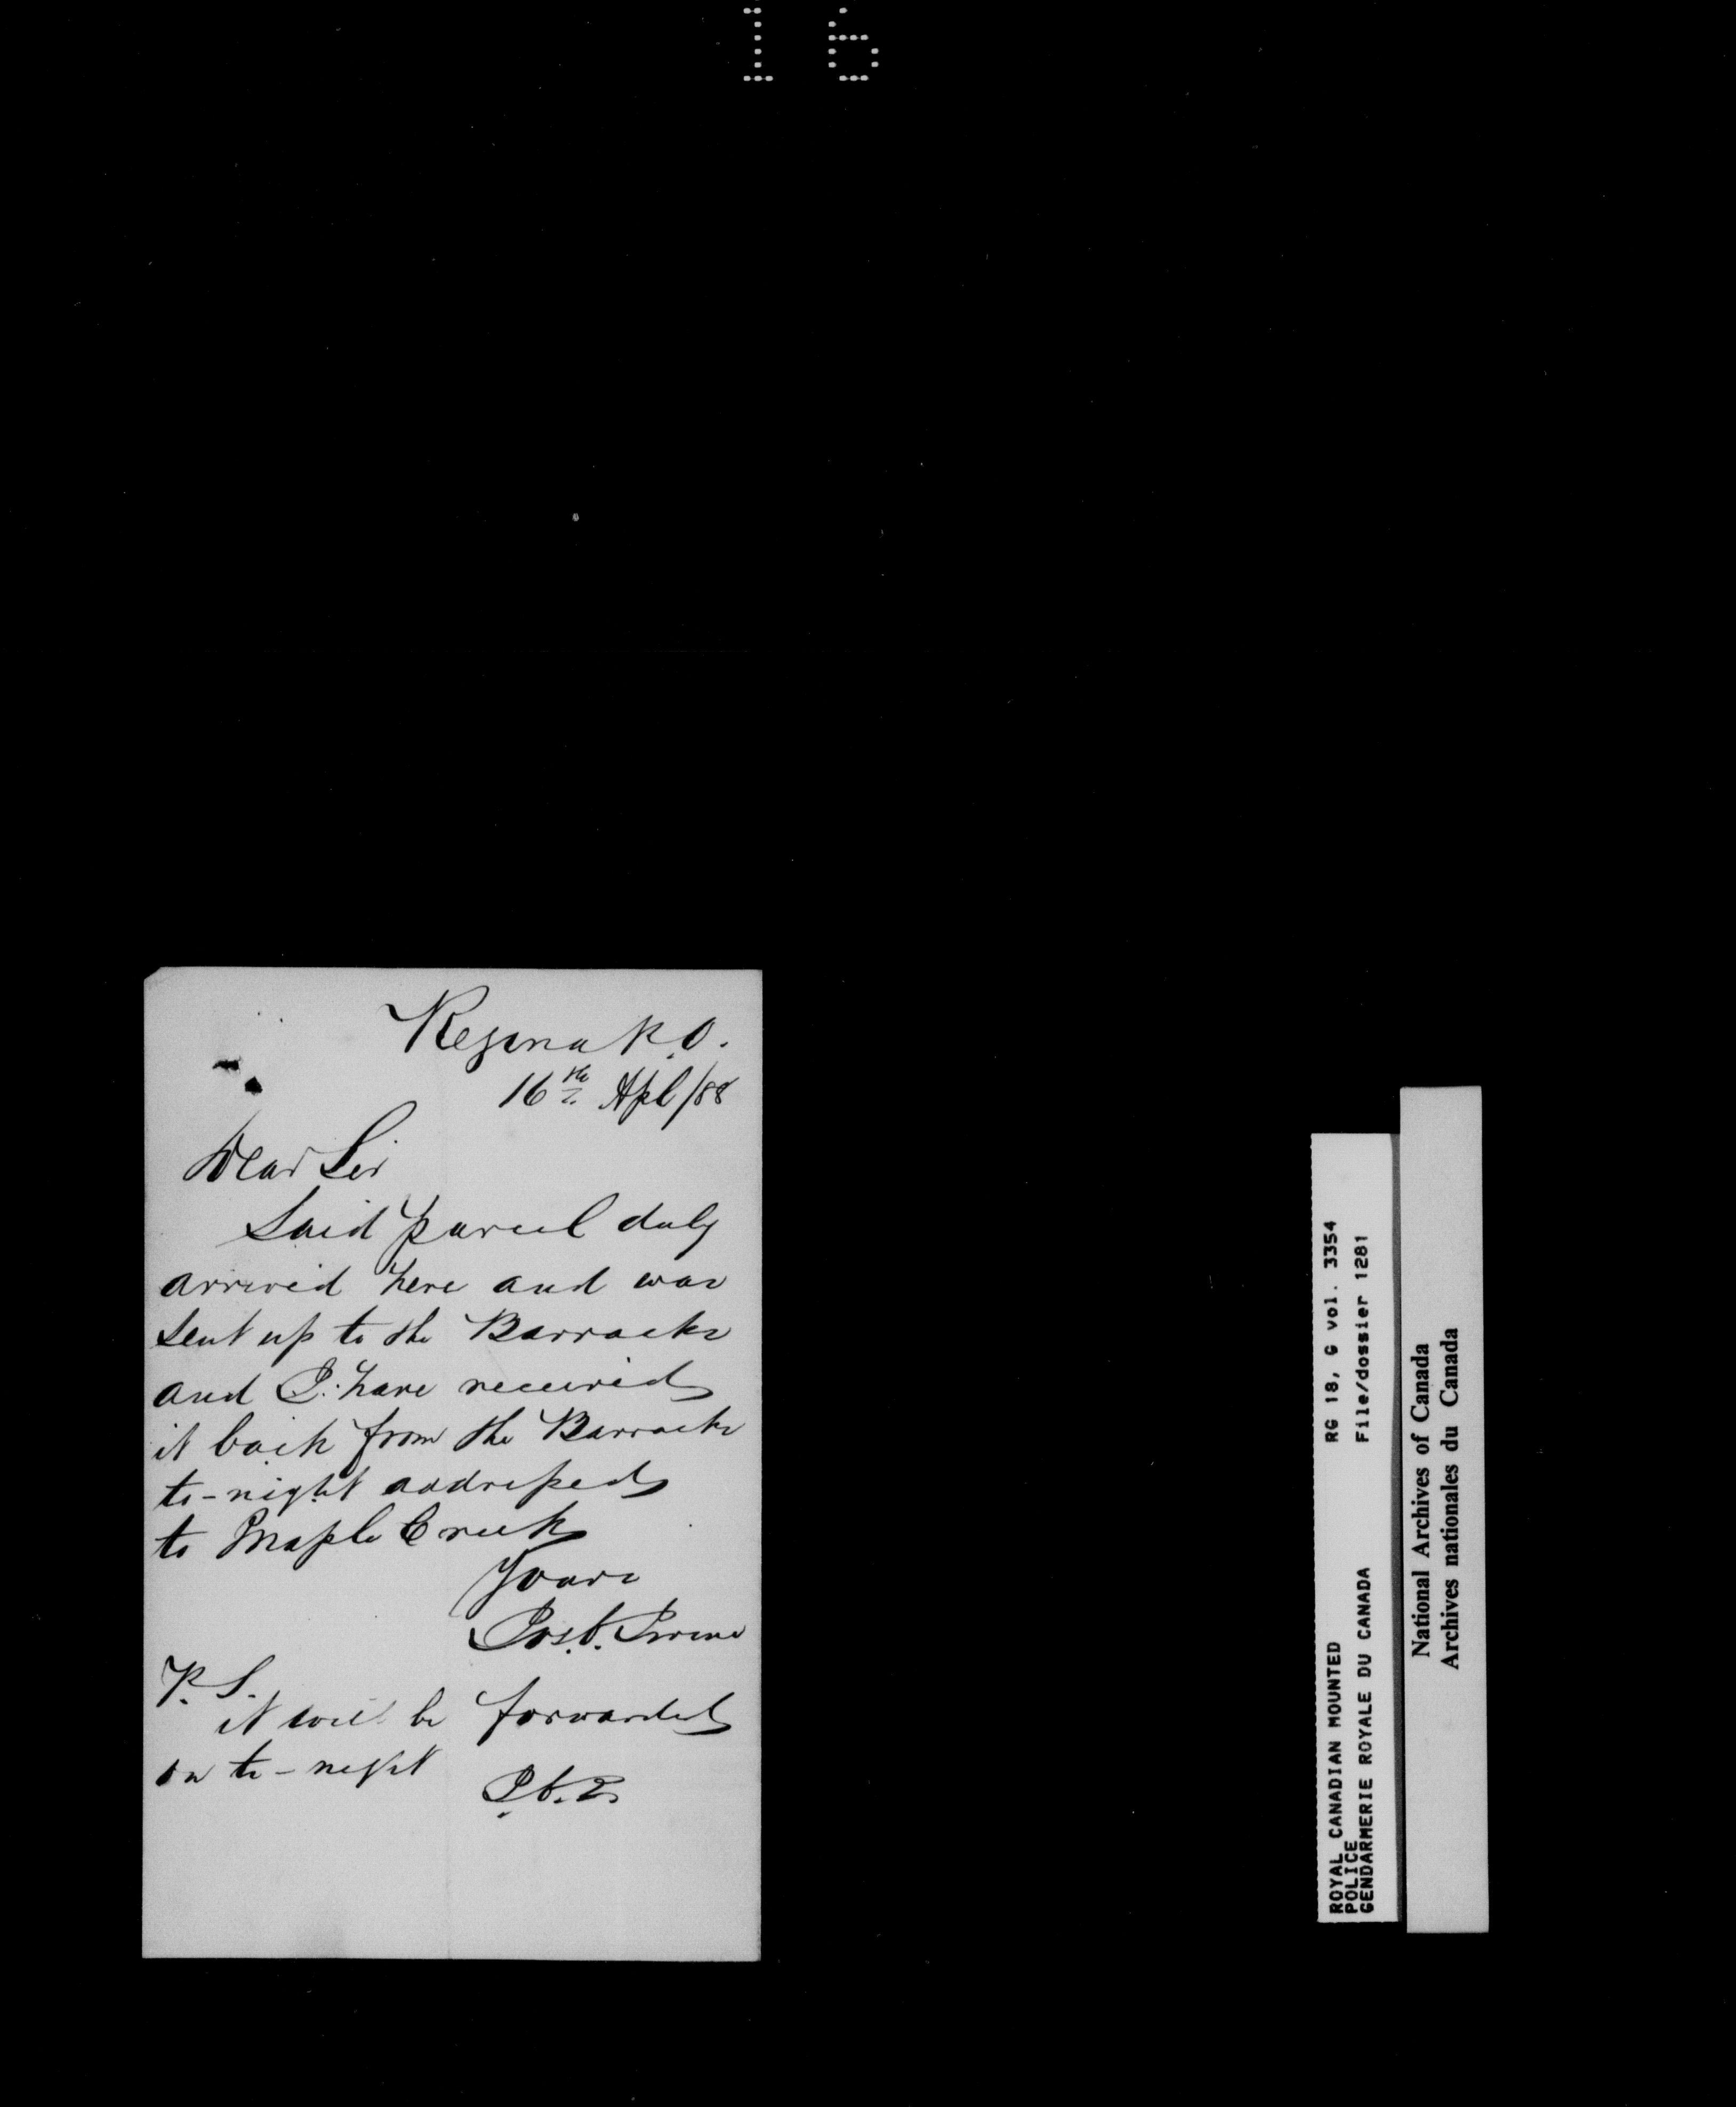 16
Regina P.O.
16th Apl/88
Dear Sir
Said parcel duly
arrived here and was
sent up to the Barracks
and I have received
it back from the Barracks
to-night addressed
to Maple Creek
Yours
P.S.
it will be forwarded
on to-night
ROYAL CANADIAN MOUNTED RG 18, G vol. 3354
POLICE
GENDARMERIE ROYALE DU CANADA File/dossier 1281
National Archives of Canada
Archives nationales du Canada